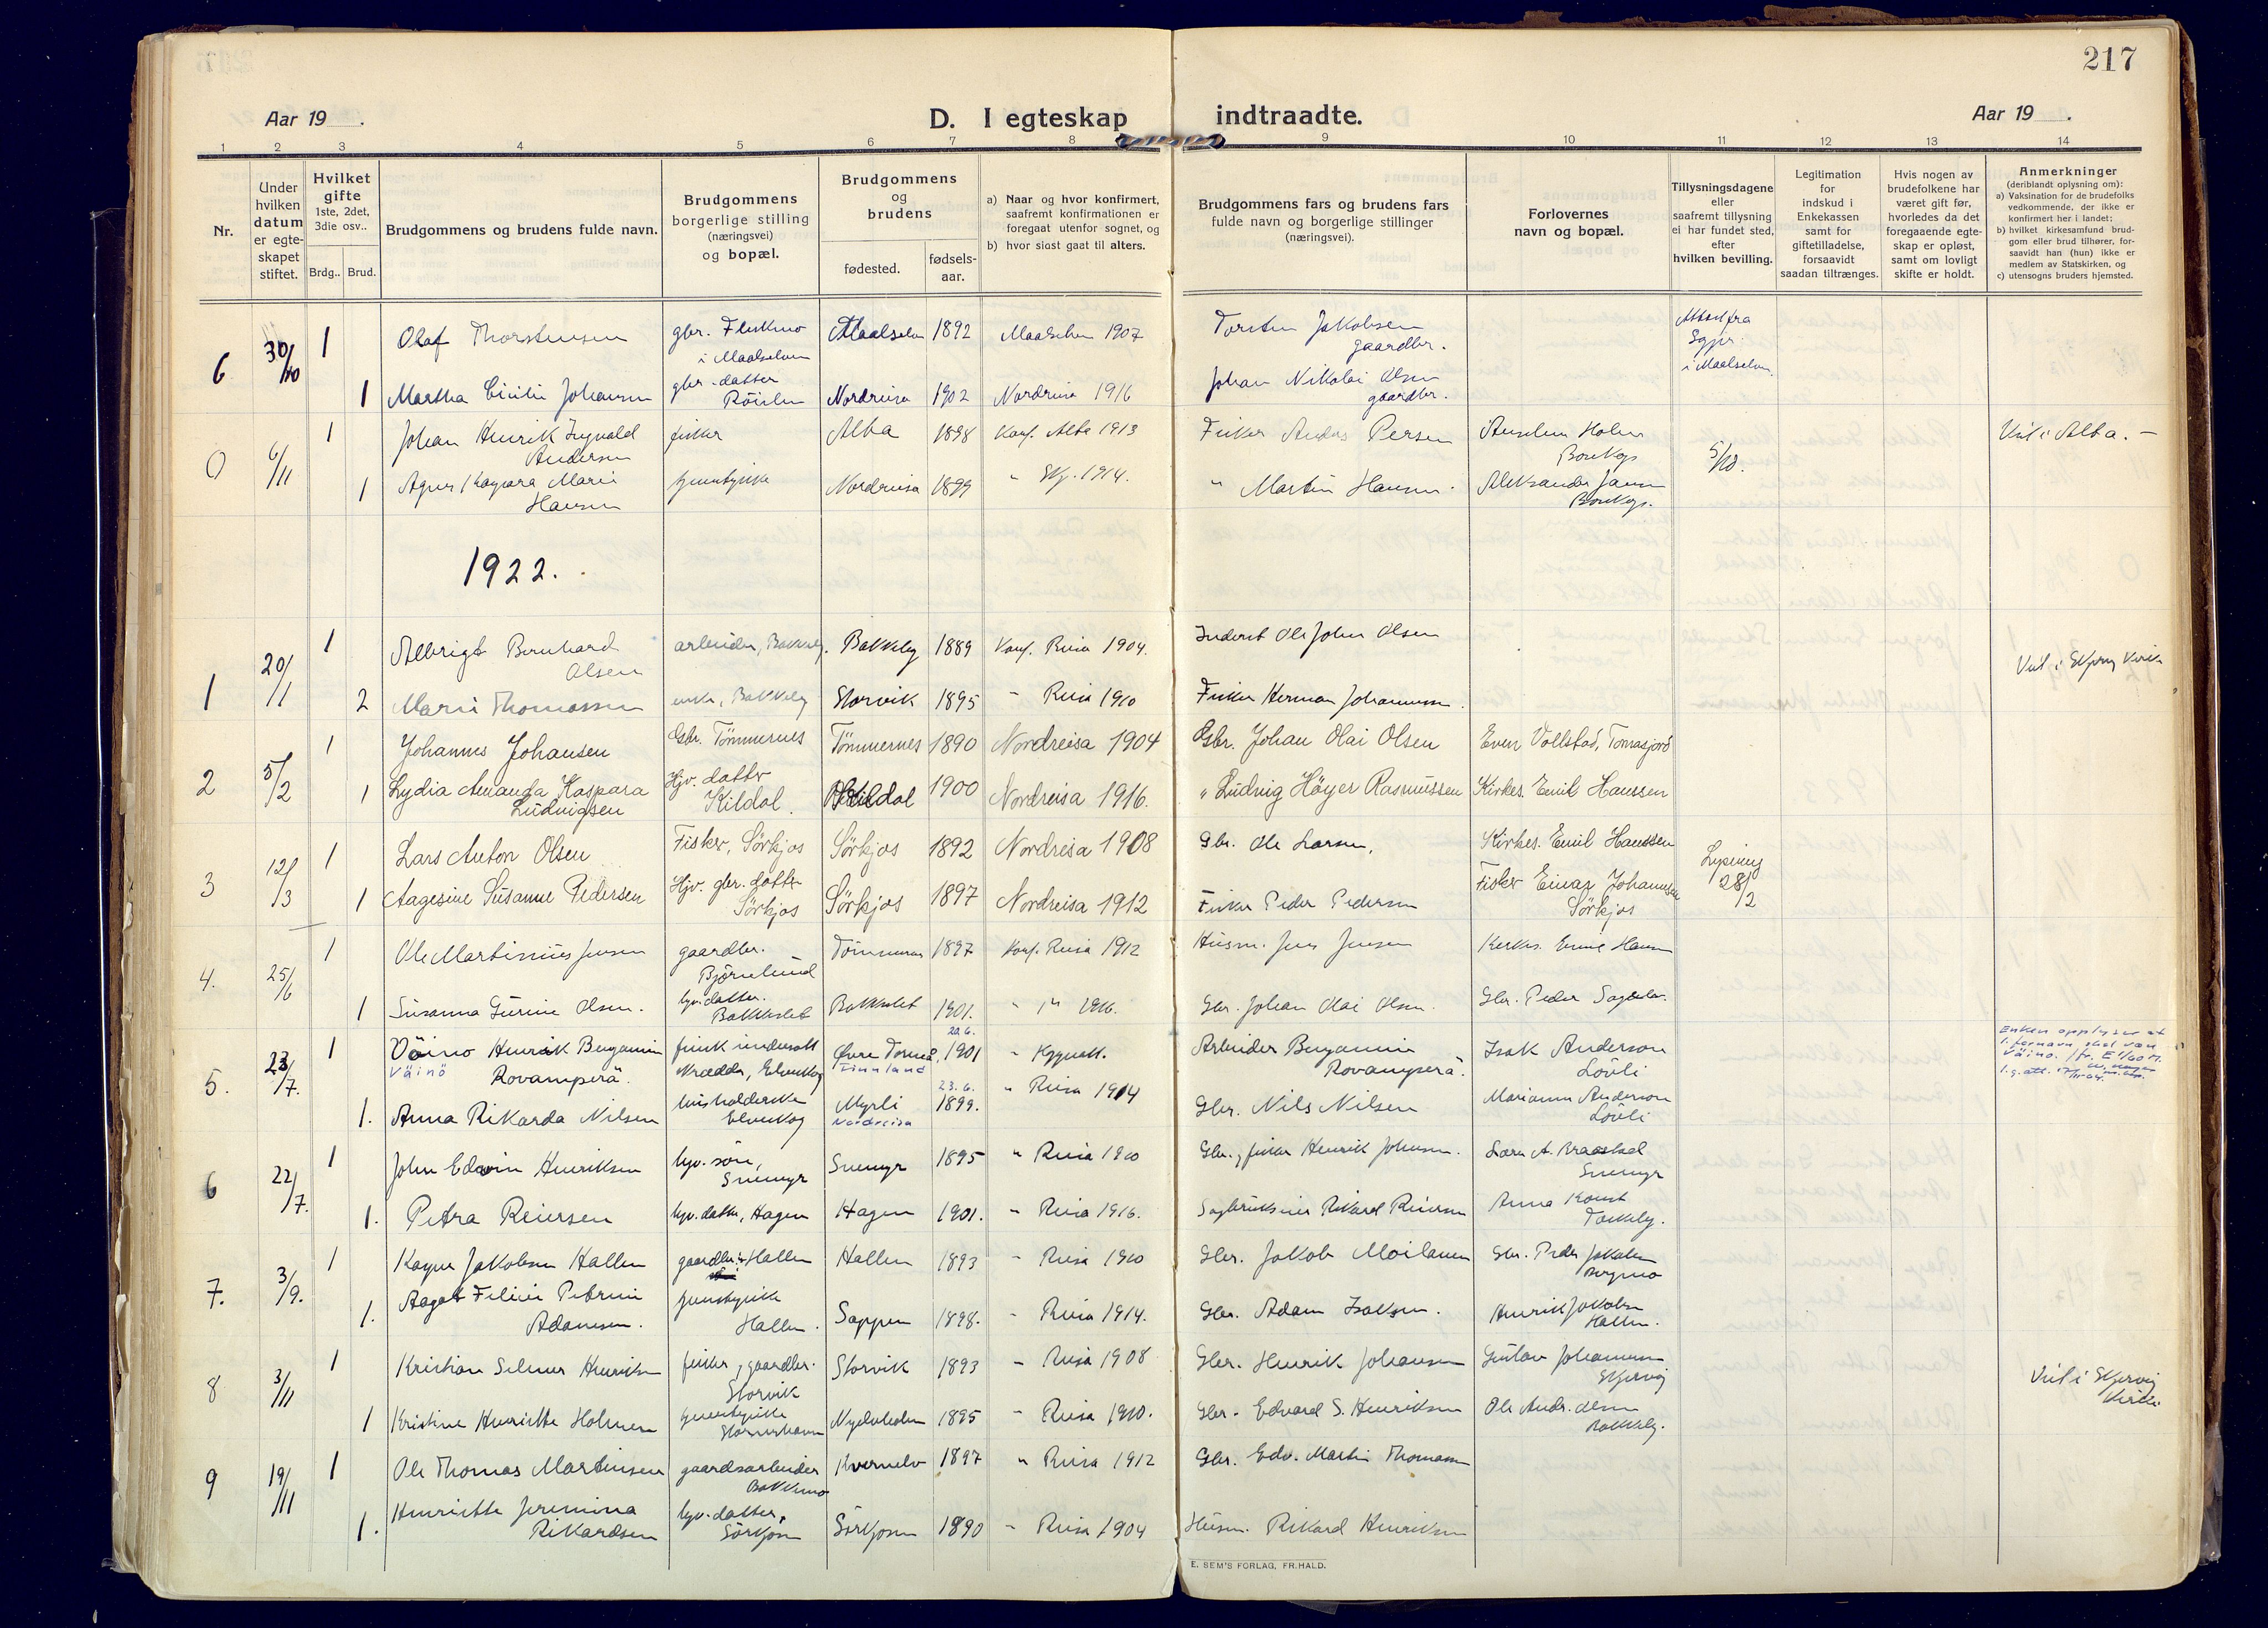 217
Aar 19
D. I egteskap
indtraadte.
Aar 19
1 2 3 4 5 6 7 8 9 10 11 12 13 14
Nr.
Under
hvilken
datum
er egte-
skapet
stiftet.
Hvilket
gifte
1ste, 2det,
3die osv..
Brdg.. Brud.
Brudgommens og brudens fulde navn.
Brudgommens
borgerlige stilling
(næringsvei)
og bopæl.
Brudgommens
og
brudens
fødested.
fødsels-
aar.
a) Naar og hvor konfirmert,
saafremt konfirmationen er
foregaat utenfor sognet, og
b) hvor sidst gaat til alters.
Brudgommens fars og brudens fars
fulde navn og borgerlige stillinger
(næringsvei).
Forlovernes
navn og bopæl.
Tillysningsdagene
eller
saafremt tillysning
ei har fundet sted,
efter
hvilken bevilling.
Legitimation
for
indskud i
Enkekassen
samt for
giftetilladelse,
forsaavidt
saadan tiltrænges.
Hvis nogen av
brudefolkene har
været gift før,
hvorledes da det
foregaaende egte-
skap er opløst,
samt om lovligt
skifte er holdt.
Anmerkninger
(deriblandt oplysning om):
a) Vaksination for de brudefolks
vedkommende, der ikke er
konfirmert her i landet;
b) hvilket kirkesamfund brud-
gom eller brud tilhører, for-
saavidt han (hun) ikke er
medlem av Statskirken, og
c) utensogns bruders hjemsted.
6 30/10 1 Olaf Thorstensen gbr. i Maalselven Maalselv 1892 Maalselven 1907 Torsten Jakobsen gaardbr.
i Maalselven.
1 Martha Johansen gbr. datter Nordreisa 1902 Nordreisa 1916 Johan Nikolai Olsen gaardbr.
0 6/11 1 Johan Henrik Ingvald Andersen fisker Alta 1898 Konf. Alta 1913 Fisker Anders Persen Holm 5/10. Viet i Alta. —
1 Agnes Kaspara Marie Hansen Nordreisa 1899 " Skj. 1914. " Martin Hansen. Aleksander
1922.
1 20/1 1 Albrigt Bernhard Olsen arbeider, Bakkeby. Bakkeby 1889 Konf. Reisa 1904. Inderst Ole John Olsen Viet i Skjervøy Kirke
2 Marie Thomassen enke, Bakkeby Storvik 1895 " Reisa 1910 Fisker Herman Johannessen.
2 5/2 1 Johannes Johansen Gbr. Tömmernes Tömmernes 1890 Nordreisa 1904 Gbr. Johan Olai Olsen Even Vollstad, Tomasjord
1 Lydia Amanda Kaspara Ludvigsen Hjv. datter Kildal. Kildal 1900 Nordreisa 1916. " Ludvig Höyer Rasmussen Kirkes. Emil Hanssen
3 12/3 1 Lars Anton Olsen Fisker, Sörkjos Sörkjos 1892 Nordreisa 1908 Gbr. Ole Larsen, Kirkes. Emil Hanssen Lysning 28/2
1 Aagesine Susanne Pedersen Hjv. gbr. datter Sörkjos Sörkjos 1897 Nordreisa 1912 Fisker Peder Pedersen Fisker Einar Johannesen Sörkjos
4. 25/6 1 Ole Martinius Jensen gaardbr. Björnelund Tömmernes 1897 Konf. Reisa 1912 Husm. Jens Jensen Kirkes. Emil Hansen
1 Susanna Gurine Olsen. hjv. datter. Bakkeslet Bakkeslet 1901. " 1916. Gbr. Johan Olai Olsen. Gbr. Peder
5. 23/7. 1 Väino Henrik Benjamin Rovamperä. Väinö finsk undersått Øvre Torneå, Finnland 20.6. 1901 " Arbeider Benjamin Rovamperä. Isak Anderson Lövli
Enken opplyser at
1. fornavn skal være
Väinö.
1. Anna Rikarda Nilsen husholderske Elvekog Myrli Nordreisa 23.6. 1899. " Reisa 1914 Gbr. Nils Nilsen Marianne Anderson Lövli
6 22/7. 1 John Edvin Henriksen hjv. sön, Snemyr Snemyr 1895 " Reisa 1910 Gbr., fisker Henrik Johansen. Lars A. Snemyr
1. Petra Reiersen hjv. datter, Hagen Hagen 1901. " Reisa 1916. Sagbrukseier Rikard Reiersen Anna
7. 3/9. 1 Kasper Jakobsen Hallen gaardbr. Hallen Hallen 1893 " Reisa 1910 Gbr. Jakob Moilanen Gbr. Peder Jakobsen
1. Aagot Petrine Adamsen. Hallen. Sappen 1898. " Reisa 1914. Gbr. Adam Isaksen. Henrik Jakobsen Hallen.
8 3/11 1 Kristian Selmer Henriksen fisker, gaardbr. Storvik Storvik 1893 " Reisa 1908 Gbr. Henrik Johansen Gustav Johannessen Skjervøy Viet i Skjervøy Kirke.
1 Kristine Henriette Holmen 1895 " Reisa 1910. Gbr. Edvard S. Henriksen Ole Andr. Olsen Bakkeby.
9 19/11 1 Ole Thomas Martinsen gaardsarbeider Bakkemo Kvernelv 1897 " Reisa 1912 Gbr. Edv. Martin Thomassen
1. Henriette Jeremina Rikardsen hjv. datter, Sörkjosen Sörkjosen 1890 " Reisa 1904 Husm. Rikard Henriksen
E. SEM'S FORLAG, FR.HALD.